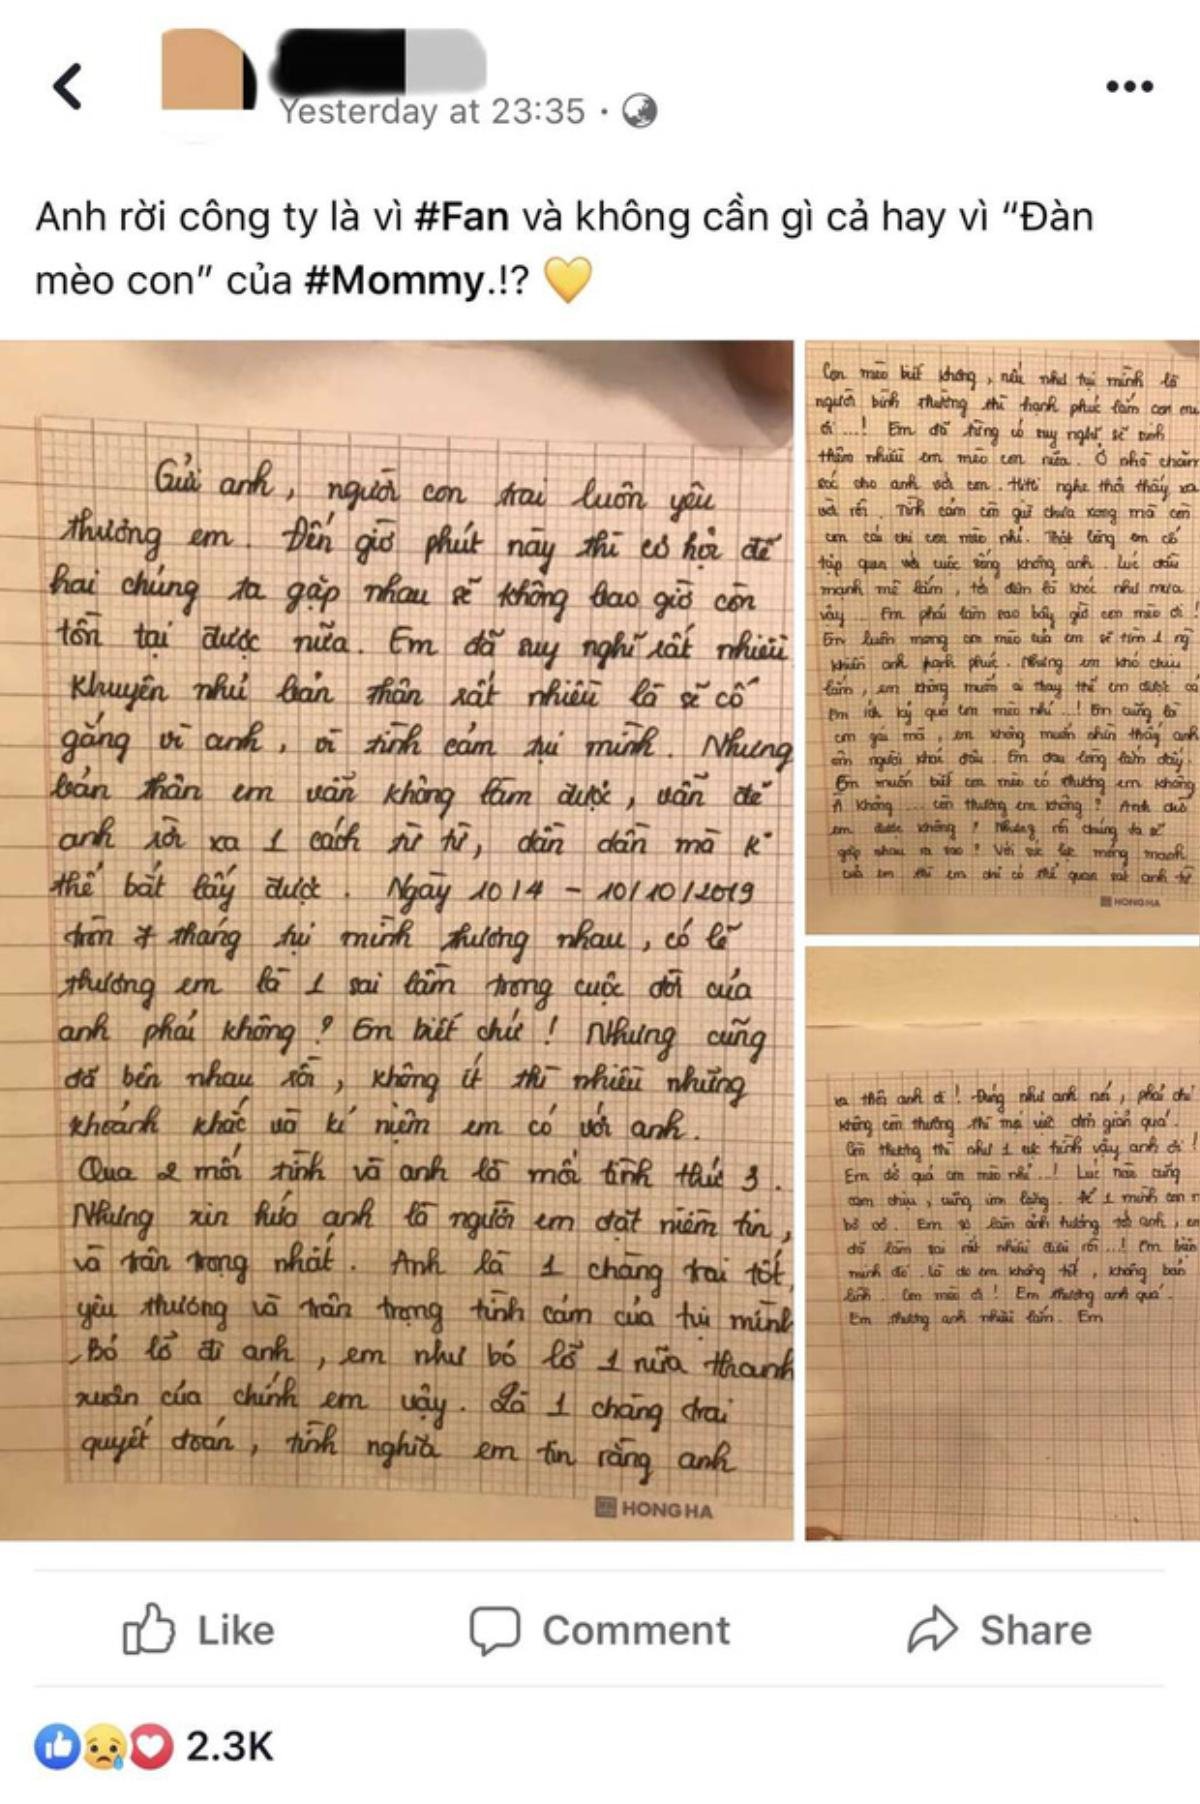 Yesterday at 23:35
Anh rời công ty là vì #Fan và không cần gì cả hay vì “Đàn
mèo con” của #Mommy.!?
Gửi anh, người con trai luôn yêu
thương em. Đến giờ phút này thì có hội để
hai chúng ta gặp nhau sẽ không bao giờ còn
tồn tại được nữa. Em đã suy nghĩ rất nhiều
Khuyên nhủ bản thân rất nhiều là sẽ cố
gắng vì anh, vì tình cảm tụi mình. Nhưng
bản thân em vẫn không làm được, vẫn để
anh rời xa 1 cách từ từ, dần dần mà k
thể bắt lấy được. Ngày 10/4 - 10/10/2019
tròn 7 tháng tụi mình thương nhau, có lẽ
thương em là 1 sai lầm trong cuộc đời của
anh phải không? Em biết chứ! Nhưng cũng
đã bên nhau rồi, không ít thì nhiều những
khoảnh khắc và kí niệm em có với anh.
Qua 2 mối tình và anh là mối tình thứ 3.
Nhưng xin hứa anh là người em đặt niềm tin,
và trân trọng nhất. Anh là 1 chàng trai tốt,
yêu thương và trân trọng tình cảm của tụi mình
Bỏ lỡ đi anh, em như bỏ lỡ 1 nửa thanh
xuân của chính em vậy. Là 1 chàng trai
quyết đoán, tình nghĩa em tin rằng anh
HONG HA
Con mèo biết không, nếu như tụi mình là
người bình thường thì hạnh phúc lắm con
ơi...! Em đã từng có suy nghĩ sẽ sinh
thêm nhiều em mèo con nữa. Ở nhà chăm
sóc cho anh với con. nghe thôi thấy xa
vời rồi. Tình cảm còn giữ chưa xong mà còn
con cái chi con mèo nhỉ. Thật lòng em cố
tập quen với cuộc sống không anh. Lúc đầu
mạnh mẽ lắm, tối đến là khóc như mưa
vậy... Em phải làm sao bây giờ con mèo ơi!
Em luôn mong con mèo của em sẽ tìm 1 ng
khiến anh hạnh phúc. Nhưng em khó chịu
lắm, em không muốn ai thay thế em được cả
Em ích kỷ quá con mèo nhỉ...! Em cũng là
con gái mà, em không muốn nhìn thấy anh
ôm người khác đâu. Em đau lòng lắm đấy.
Em muốn biết con mèo có thương em không
À không.... còn thương em không? Anh
em được không? Nhưng rồi chúng ta sẽ
gặp nhau ra sao? Với sức lực mỏng manh
của em thì em chỉ có thể quan sát anh từ
HONG HA
xa thôi anh ơi! Đúng như anh nói, phải chi
không còn thương thì mọi việc đơn giản quá.
Còn thương thì như 1 cực hình vậy anh ơi!
Em dở quá con mèo nhỉ...! Lúc nào cũng
cam chịu, cũng im lặng. Để 1 mình con
bơ vơ. Em sợ làm ảnh hưởng tới anh,
đã làm sai rất nhiều điều rồi...! Em
mình đó là do em không tốt, không bản
lĩnh. Con mèo ơi! Em thương anh quá.
Em thương anh nhiều lắm. Em
Like
Comment
Share
2.3K